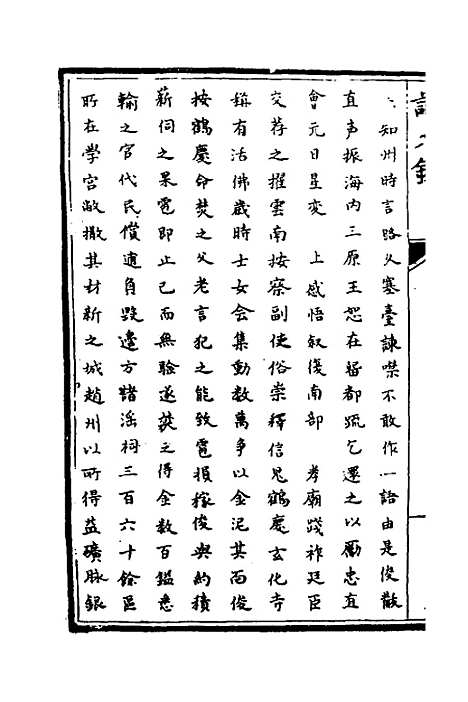 知州時言路久塞臺諫噤不敢作一語由是俊散
直声振海内三原王恕在畱都疏乞還之以勵忠直
會元日星変　上感悟叙復南部　孝廟踐祚廷臣
交荐之擢雲南按察副使俗崇釋信鬼鶴慶玄化寺
稱有活佛歲時士女会集動数萬争以金泥其面俊
按鶴慶命焚之父老言犯之能致雹損稼俊與約積
薪伺之果雹即止已而無驗遂焚之得金数百鎰悉
輸之官代民償逋負毀邉方諸淫祠三百六十餘區
所在学宫敝撤其材新之城趙州以所得葢礦脉銀